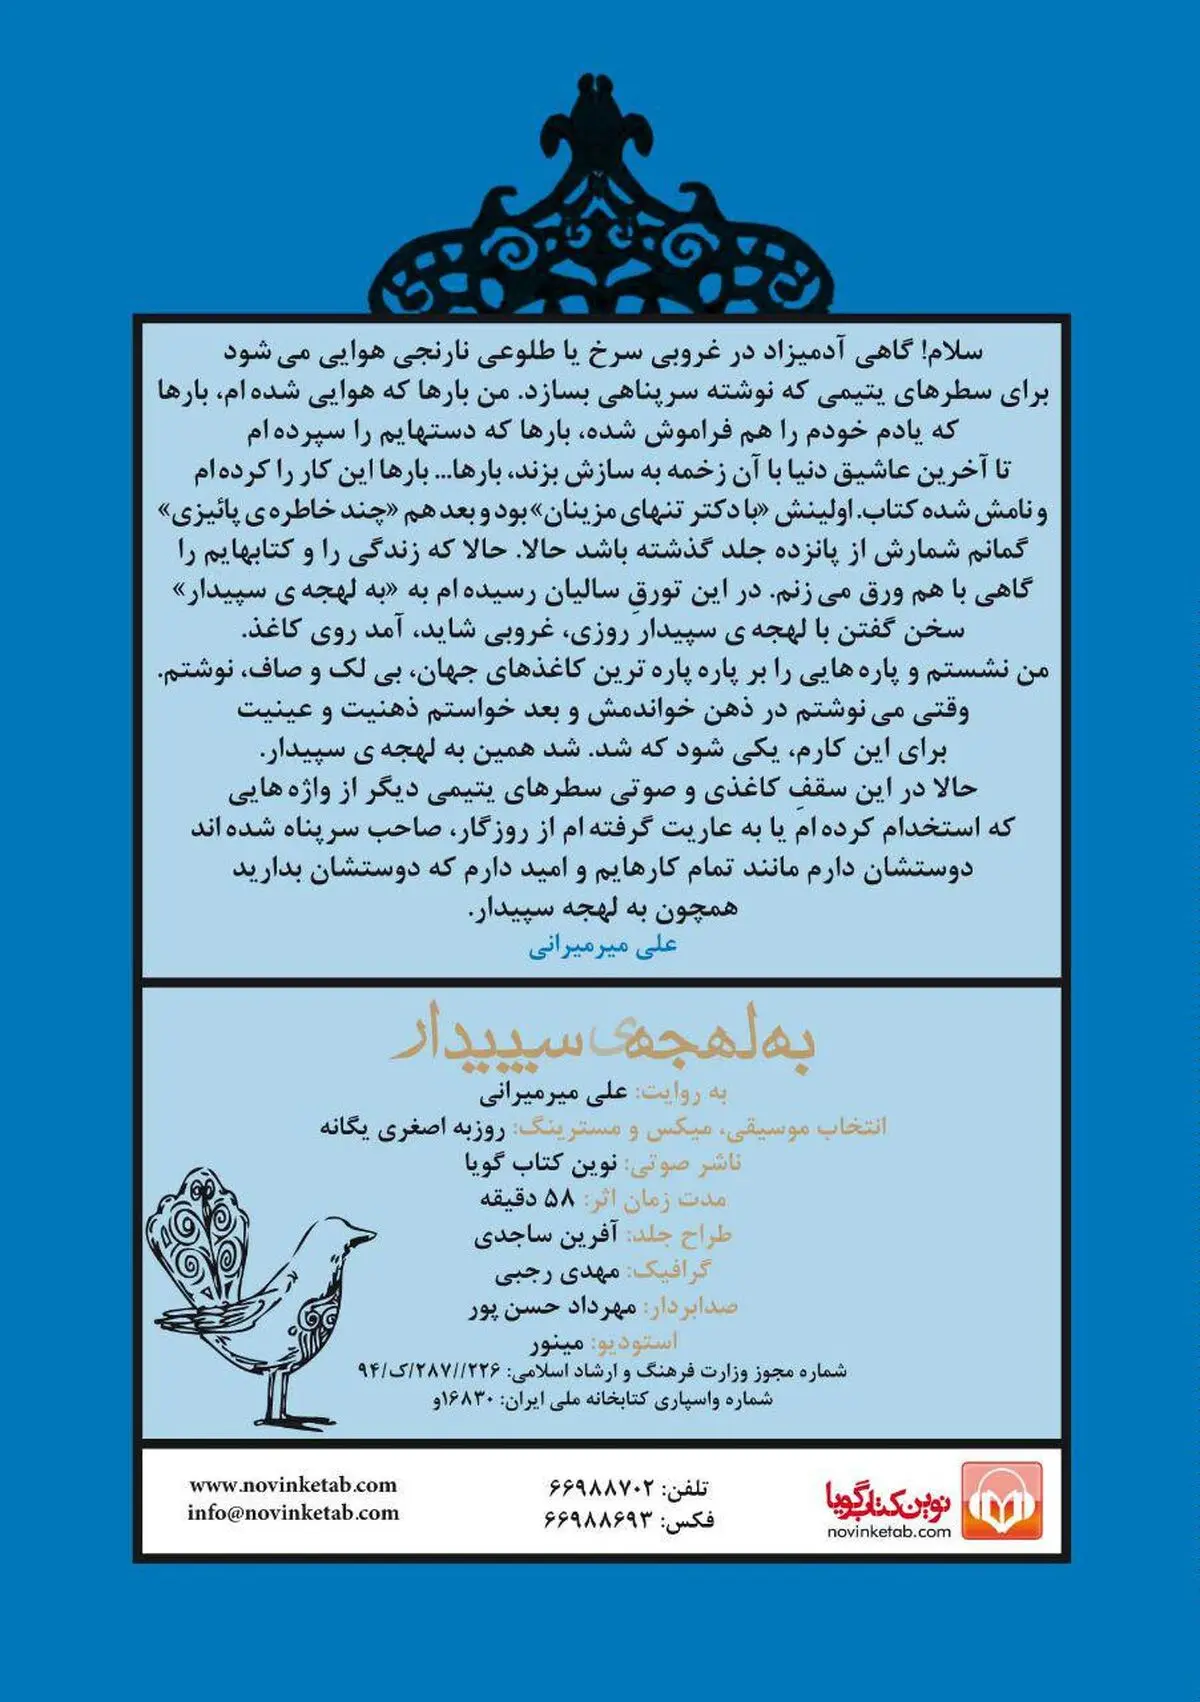 سلام! گاهی آدمیزاد در غروبی سرخ یا طلوعی نارنجی هوایی می شود
برای سطرهای یتیمی که نوشته سرپناهی بسازد. من بارها که هوایی شده ام، بارها
که یادم خودم را هم فراموش شده، بارها که دستهایم را سپرده ام
تا آخرین عاشیق دنیا با آن زخمه به سازش بزند، بارها... بارها این کار را کرده ام
و نامش شده کتاب. اولینش «با دکتر تنهای مزینان» بود و بعد هم «چند خاطره ی پائیزی»
گمانم شمارش از پانزده جلد گذشته باشد حالا. حالا که زندگی را و کتابهایم را
گاهی با هم ورق می زنم. در این تورقِ سالیان رسیده ام به «به لهجه ی سپیدار»
سخن گفتن با لهجه ی سپیدار روزی، غروبی شاید، آمد روی کاغذ.
من نشستم و پاره هایی را بر پاره پاره ترین کاغذهای جهان، بی لک و صاف، نوشتم.
وقتی می نوشتم در ذهن خواندمش و بعد خواستم ذهنیت و عینیت
برای این کارم، یکی شود که شد. شد همین به لهجه ی سپیدار.
حالا در این سقفِ کاغذی و صوتی سطرهای یتیمی دیگر از واژه هایی
که استخدام کرده ام یا به عاریت گرفته ام از روزگار، صاحب سرپناه شده اند
دوستشان دارم مانند تمام کارهایم و امید دارم که دوستشان بدارید
همچون به لهجه سپیدار.
علی میرمیرانی
به لهجه‌ی سپیدار
به روایت: علی میرمیرانی
انتخاب موسیقی، میکس و مسترینگ: روزبه اصغری یگانه
ناشر صوتی: نوین کتاب گویا
مدت زمان اثر: ۵۸ دقیقه
طراح جلد: آفرین ساجدی
گرافیک: مهدی رجبی
صدابردار: مهرداد حسن پور
استودیو: مینور
شماره مجوز وزارت فرهنگ و ارشاد اسلامی: ۲۲۶//۲۸۷/ک/۹۴
شماره واسپاری کتابخانه ملی ایران: ۱۶۸۳۰و
نوین کتاب گویا
novinketab.com
تلفن: ۶۶۹۸۸۷۰۲
فکس: ۶۶۹۸۸۶۹۳
www.novinketab.com
info@novinketab.com